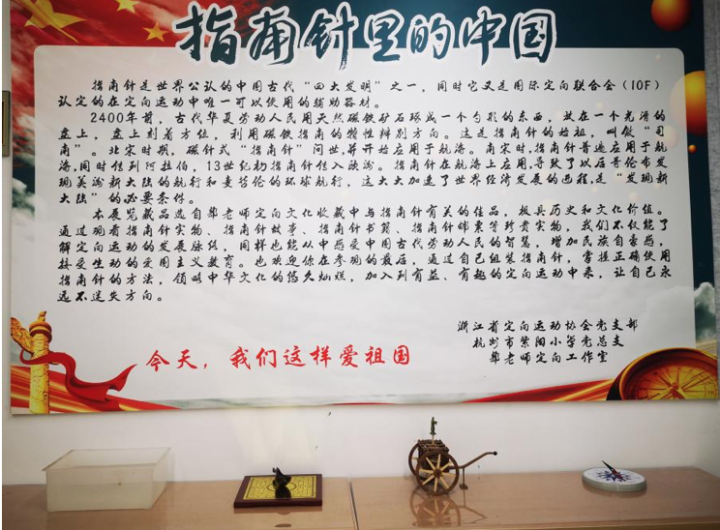 指南针里的中国
指南针是世界公认的中国古代“四大发明”之一，同时它又是国际定向联合会（IOF）
认定的在定向运动中唯一可以使用的辅助器材。
2400年前，古代华夏劳动人民用天然磁铁矿石琢成一个勺形的东西，放在一个光滑的
盘上，盘上刻着方位，利用磁铁指南的特性辨别方向。这是指南针的始祖，叫做“司
南”。北宋时期，磁针式“指南针”问世，并开始应用于航海。南宋时，指南针普遍应用于航
海，同时传到阿拉伯，13世纪初指南针传入欧洲。指南针在航海上应用，导致了以后哥伦布发
现美洲新大陆的航行和麦哲伦的环球航行，这大大加速了世界经济发展的进程，是“发现新
大陆”的必要条件。
本展览藏品选自葬老师定向文化收藏中与指南针有关的佳品，极具历史和文化价值。
通过观看指南针实物、指南针故事、指南针书籍、指南针邮票等珍贵实物，我们不仅能了
解定向运动的发展脉络，同样也能从中感受中国古代劳动人民的智慧，增加民族自豪感，
接受生动的爱国主义教育。也欢迎你在参观的最后，通过自己组装指南针，掌握正确使用
指南针的方法，领略中华文化的悠久灿烂，加入到有益、有趣的定向运动中来，让自己永
远不迷失方向。
浙江省定向运动协会党支部
杭州市紫阳小学党总支
老师定向工作室
今天，我们这样爱祖国